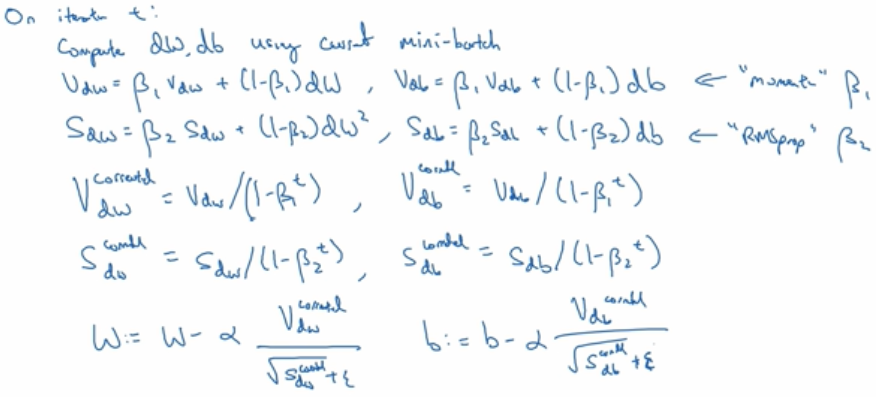 On iteration t:
Compute dW, db using current mini-batch
Vdw = β₁ Vdw + (1-β₁) dW , Vdb = β₁ Vdb + (1-β₁) db ← "momentum" β₁
Sdw = β₂ Sdw + (1-β₂) dW² , Sdb = β₂ Sdb + (1-β₂) db ← "RMSprop" β₂
Vdw^corrected = Vdw/(1-β₁^t) , Vdb^corrected = Vdb/(1-β₁^t)
Sdw^corrected = Sdw/(1-β₂^t) , Sdb^corrected = Sdb/(1-β₂^t)
W := W - α Vdw^corrected / (√Sdw^corrected + ε) b := b - α Vdb^corrected / (√Sdb^corrected + ε)